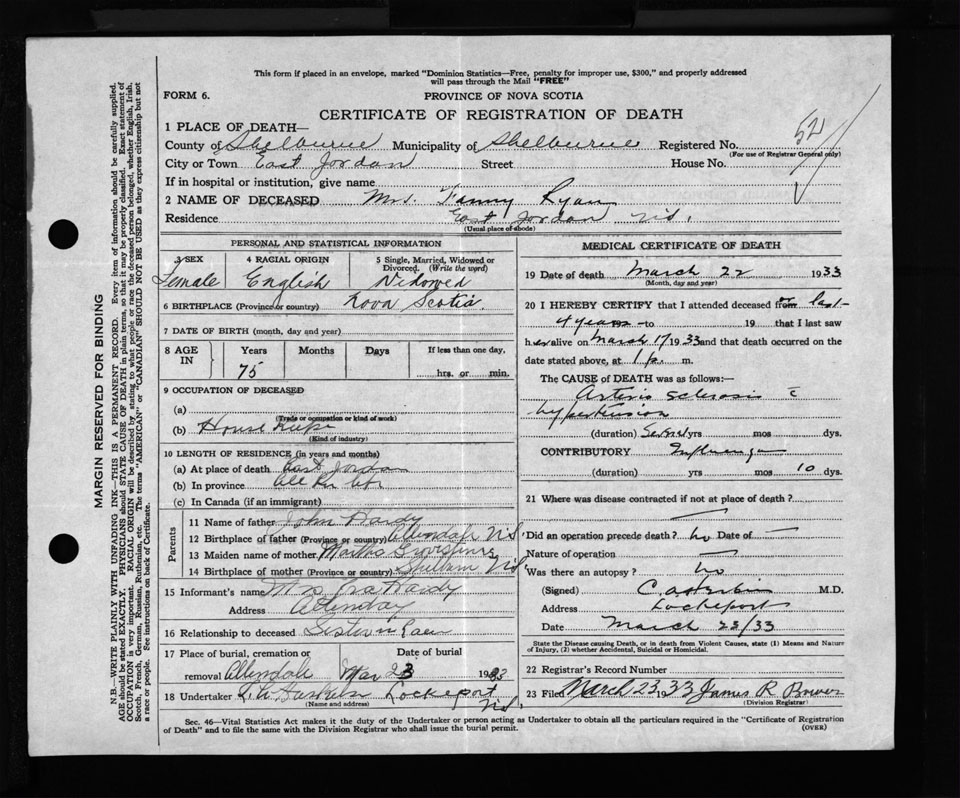 This form if placed in an envelope, marked "Dominion Statistics—Free, penalty for improper use, $300," and properly addressed
will pass through the Mail "FREE"
FORM 6. PROVINCE OF NOVA SCOTIA
CERTIFICATE OF REGISTRATION OF DEATH
1 PLACE OF DEATH—
County of Shelburne Municipality of Shelburne Registered No.
(For use of Registrar General only)
City or Town East Jordan Street House No.
If in hospital or institution, give name
2 NAME OF DECEASED Mrs. Fanny Ryan
Residence East Jordan N.S.
(Usual place of abode)
PERSONAL AND STATISTICAL INFORMATION
3 SEX 4 RACIAL ORIGIN 5 Single, Married, Widowed or
Divorced. (Write the word)
Female English Widowed
6 BIRTHPLACE (Province or country) Nova Scotia
7 DATE OF BIRTH (month, day and year)
8 AGE IN Years Months Days If less than one day,
75 hrs. or min.
9 OCCUPATION OF DECEASED
(a)
(Trade or occupation or kind of work)
(b) House Keeper
(Kind of industry)
10 LENGTH OF RESIDENCE (in years and months)
(a) At place of death East Jordan
(b) In province All her life
(c) In Canada (if an immigrant)
Parents
11 Name of father John Hardy
12 Birthplace of father (Province or country) Allendale N.S.
13 Maiden name of mother Martha
14 Birthplace of mother (Province or country) N.S.
15 Informant's name Mrs Ira Hardy
Address Allenday
16 Relationship to deceased Sister in Law
17 Place of burial, cremation or Date of burial
removal Allendale Mar 23 1933
18 Undertaker Lockeport N.S.
(Name and address)
MEDICAL CERTIFICATE OF DEATH
19 Date of death March 22 1933
(Month, day and year)
20 I HEREBY CERTIFY that I attended deceased from or last
4 years to 19 that I last saw
her alive on March 17 1933 and that death occurred on the
date stated above, at 1 p. m.
The CAUSE of DEATH was as follows:—
Arterio sclerosis c̄
hypertension
(duration) Several yrs mos dys.
CONTRIBUTORY Influenza
(duration) yrs mos 10 dys.
21 Where was disease contracted if not at place of death?
Did an operation precede death? no Date of —
Nature of operation —
Was there an autopsy? no
(Signed) M.D.
Address Lockeport
Date March 23/33
State the Disease causing Death, or in death from Violent Causes, state (1) Means and Nature
of Injury, (2) whether Accidental, Suicidal or Homicidal.
22 Registrar's Record Number
23 Filed March 23 1933 James R Bower
(Division Registrar)
Sec. 46—Vital Statistics Act makes it the duty of the Undertaker or person acting as Undertaker to obtain all the particulars required in the "Certificate of Registration
of Death" and to file the same with the Division Registrar who issues the burial permit. (OVER)
MARGIN RESERVED FOR BINDING
N.B.—WRITE PLAINLY WITH UNFADING INK—THIS IS A PERMANENT RECORD. Every item of information should be carefully supplied.
AGE should be stated EXACTLY. PHYSICIANS should STATE CAUSE OF DEATH in plain terms, so that it may be properly classified. Exact statement of
OCCUPATION is very important. RACIAL ORIGIN will be described by stating to what people or race the deceased person belonged, whether English, Irish,
Scotch, French, German, Russian, Ruthenian, etc. The terms "AMERICAN" or "CANADIAN" SHOULD NOT BE USED as they express citizenship but not
a race or people. See instructions on back of Certificate.